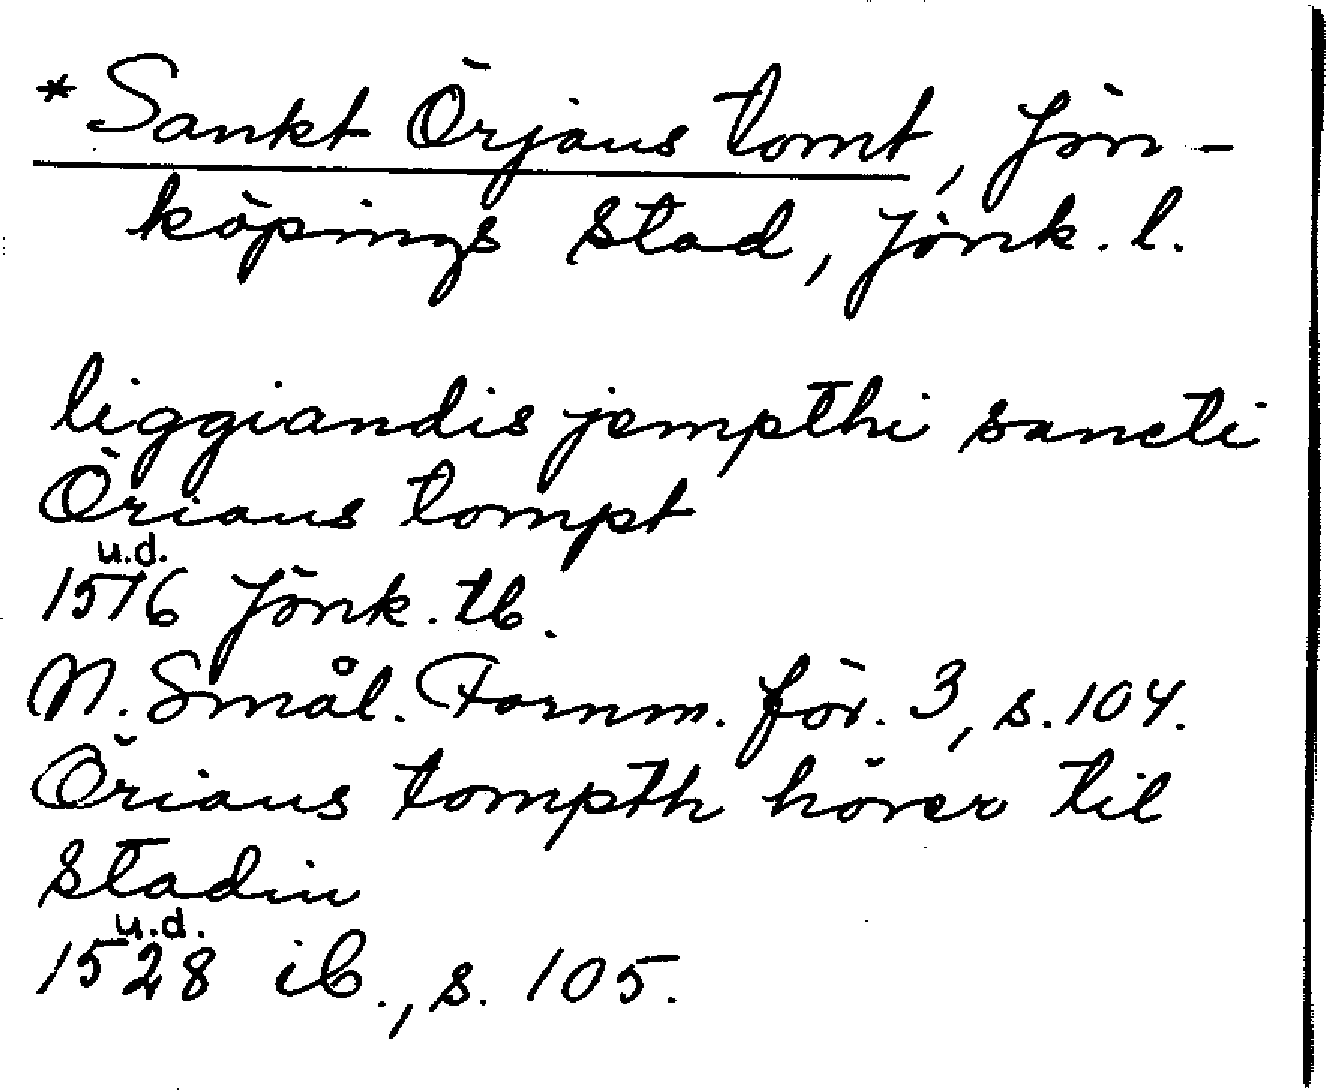 *Sankt Örjans tomt, Jön-
köpings stad, Jönk. l.
liggiandis jempthi sancti
Örians tompt
u.d.
1516 Jönk. tb.
N. Smål. Fornm. för. 3, s. 104.
Örians tompth hörer til
stadin
u.d.
1528 ib., s. 105.